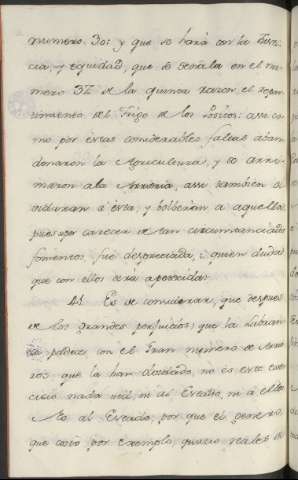 numero 30: y que se hará con la Justi-
cia, y equidad, que se señala en el nu-
mero 37 de la quinta razon el repar-
timiento del Trigo de los Positos: asi co-
mo por estas considerables faltas aban-
donaron la Agricultura, y se arri-
maron a la Arrieria, asi tambien a-
bandonaran á esta, y bolberan a aquella
pues por carecer de tan circunstanciados
fomentos, fue despreciada, y quien duda
que con ellos será apetecida.
41. Es de considerar, que despues
de los grandes perjuicios, que la Labran-
za padece, con el Gran numero de Arrie-
ros, que la han olvidado, no es este exer-
cicio nada util, ni al Estado, ni á ellos
No al Estado, por que el genero,
que costó por exemplo, quince reales